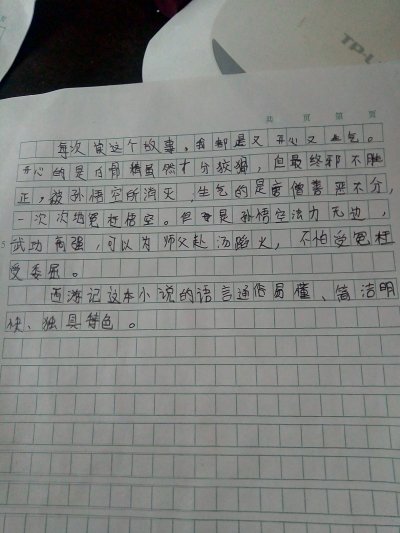 TP-L
共 页 第 页
每次读这个故事，我都是又开心又生气。
开心的是白骨精虽然十分狡猾，但最终邪不胜
正，被孙悟空所消灭，生气的是唐僧善恶不分，
一次次地冤枉悟空。但是孙悟空法力无边，
武功高强，可以为师父赴汤蹈火，不怕受冤枉
受委屈。
5
西游记这本小说的语言通俗易懂、简洁明
快、独具特色。